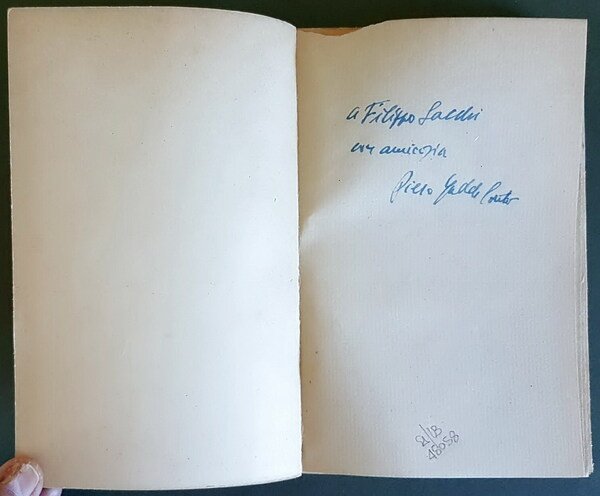 a Filippo Sacchi
con amicizia
Piero Gadda Conti
48058